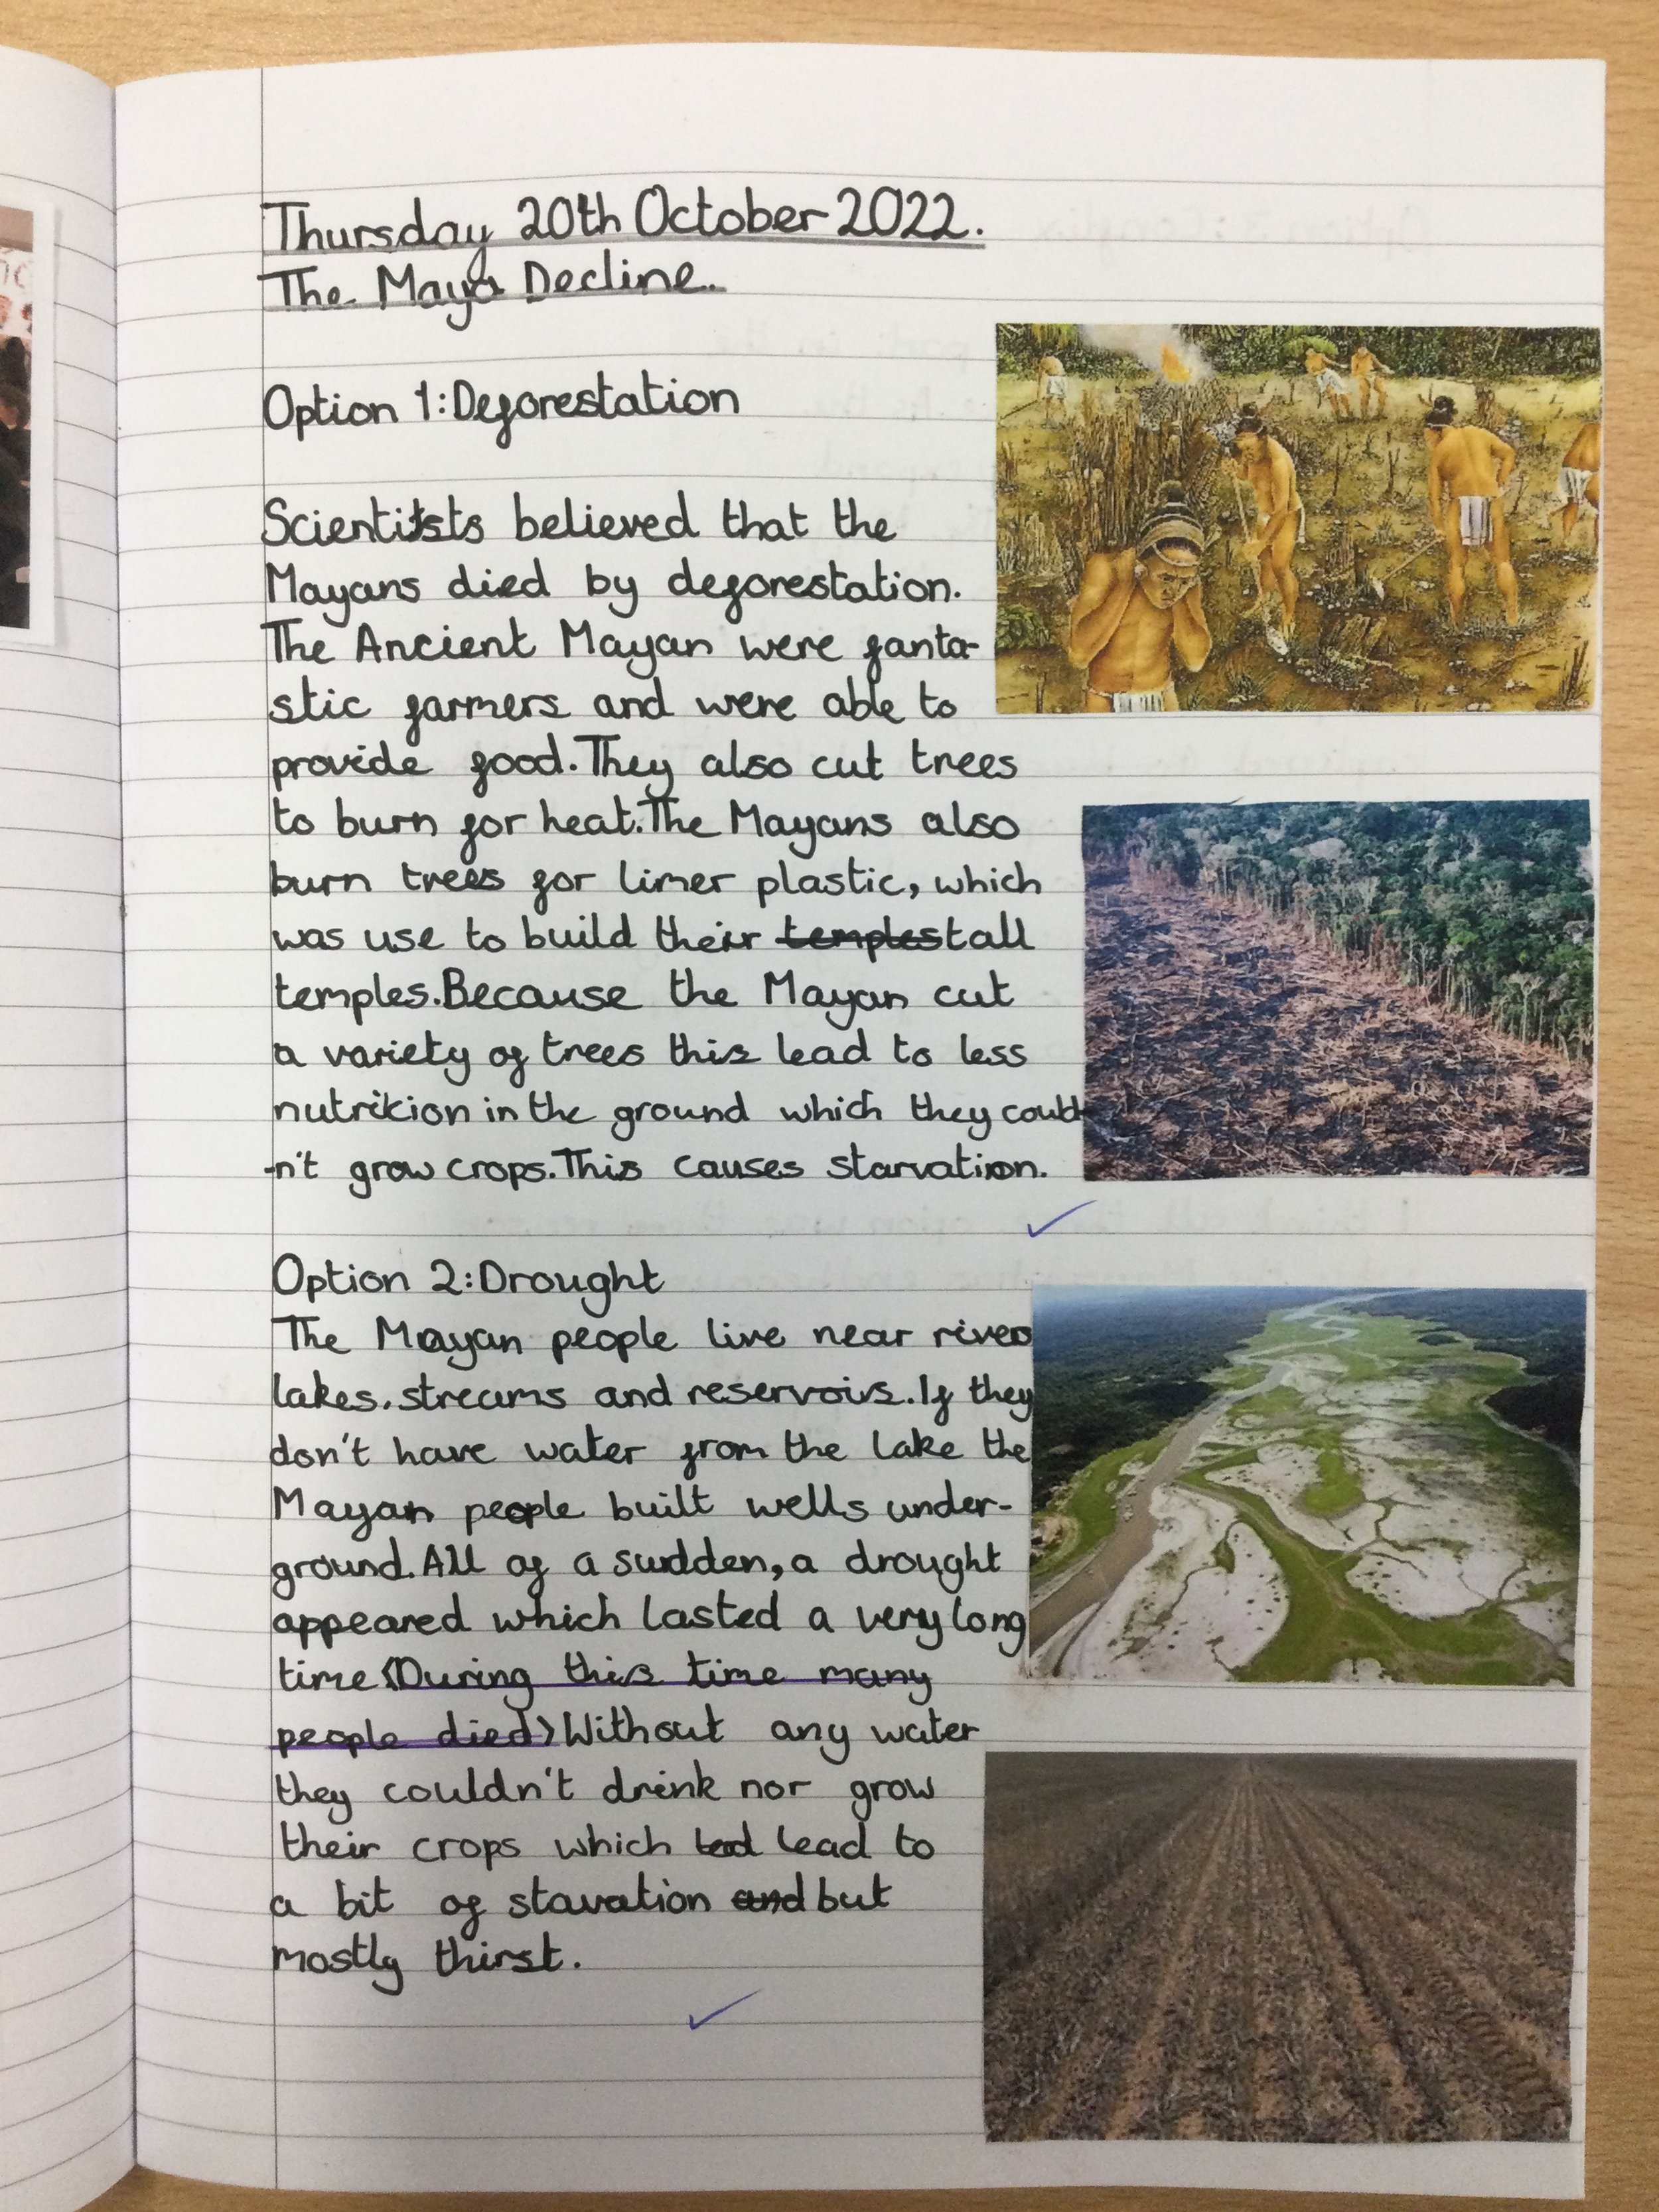 Thursday 20th October 2022.
The Maya Decline.
Option 1: Deforestation
Scientitsts believed that the
Mayans died by deforestation.
The Ancient Mayan were fanta-
stic farmers and were able to
provide food. They also cut trees
to burn for heat. The Mayans also
burn trees for limer plastic, which
was use to build their temples tall
temples. Because the Mayan cut
a variety of trees this lead to less
nutrition in the ground which they could
-n't grow crops. This causes starvation.
Option 2: Drought
The Mayan people live near river
lakes, streams and reservoirs. If they
don't have water from the lake the
Mayan people built wells under-
ground. All of a sudden, a drought
appeared which lasted a very long
time. (During this time many
people died) Without any water
they couldn't drink nor grow
their crops which led lead to
a bit of stavation and but
mostly thirst.